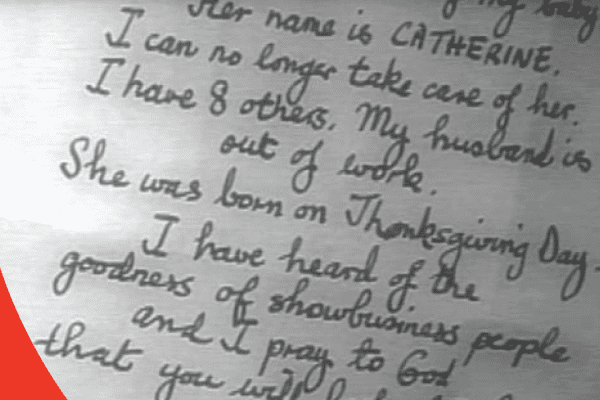 my baby
Her name is CATHERINE.
I can no longer take care of her.
I have 8 others. My husband is
out of work.
She was born on Thanksgiving Day.
I have heard of the
goodness of showbusiness people
and I pray to God
that you will